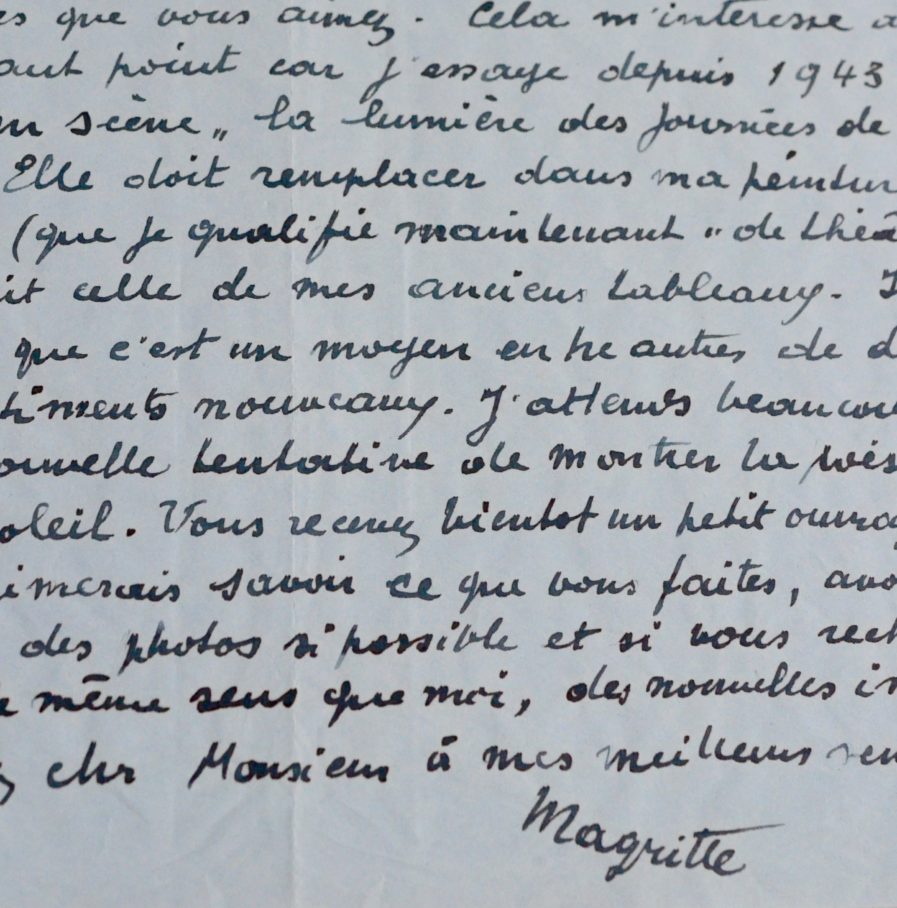 es que vous aimez. Cela m'intéresse a
aut point car j'essaye depuis 1943
en scène „ la lumière des journées de
Elle doit remplacer dans ma peintur
(que je qualifie maintenant "de théâ
it celle de mes anciens tableaux. J
que c'est un moyen entre autres de d
timents nouveaux. J'attends beaucou
ouvelle tentative de montrer la poés
oleil. Vous recevez bientot un petit ouvra
imerais savoir ce que vous faites, avo
des photos si possible et si vous rech
e même sens que moi, des nouvelles in
z cher Monsieur à mes meilleurs sen
Magritte